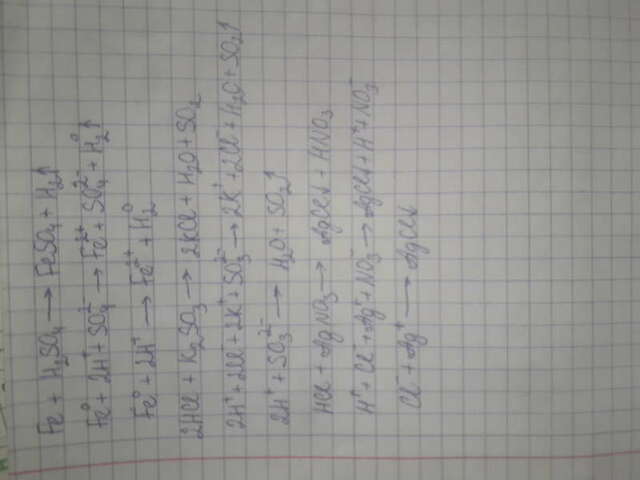 Fe + H₂SO₄ → FeSO₄ + H₂↑
Fe⁰ + 2H⁺ + SO₄²⁻ → Fe²⁺ + SO₄²⁻ + H₂⁰↑
Fe⁰ + 2H⁺ → Fe²⁺ + H₂⁰
2HCl + K₂SO₃ → 2KCl + H₂O + SO₂
2H⁺ + 2Cl⁻ + 2K⁺ + SO₃²⁻ → 2K⁺ + 2Cl⁻ + H₂O + SO₂↑
2H⁺ + SO₃²⁻ → H₂O + SO₂↑
HCl + AgNO₃ → AgCl↓ + HNO₃
H⁺ + Cl⁻ + Ag⁺ + NO₃⁻ → AgCl↓ + H⁺ + NO₃⁻
Cl⁻ + Ag⁺ → AgCl↓